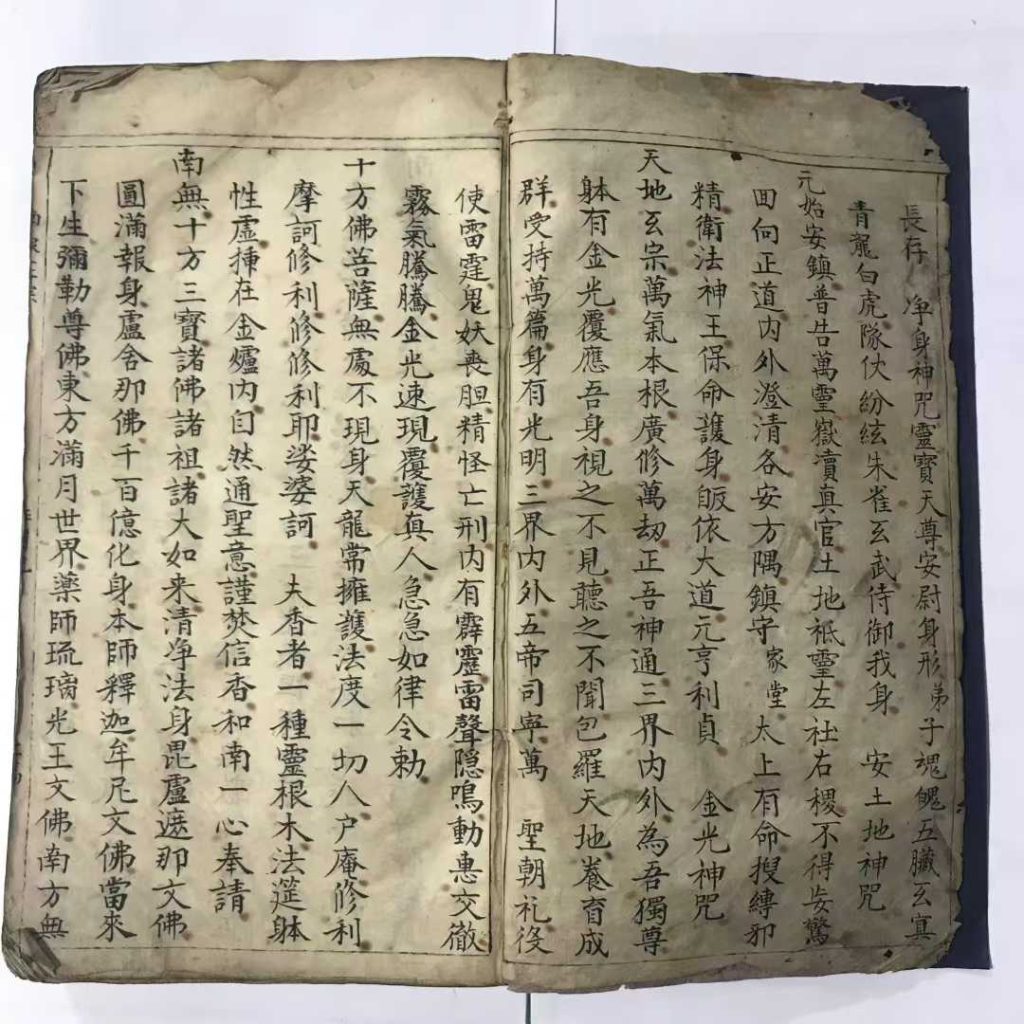 長存　净身神咒靈寶天尊安尉身形弟子魂魄五臟玄冥
青龍白虎隊仗紛紜朱雀玄武侍御我身　安土地神咒
元始安鎮普告萬靈嶽瀆真官土地袛靈左社右稷不得妄驚
回向正道内外澄清各安方隅鎮守家堂太上有命搜縛邪
精衛法神王保命護身皈依大道元亨利貞　金光神咒
天地玄宗萬氣本根廣修萬刧正吾神通三界内外為吾獨尊
躰有金光覆應吾身視之不見聽之不聞包羅天地養育成
群受持萬篇身有光明三界内外五帝司寧萬　聖朝礼役
使雷霆鬼妖丧胆精怪亡刑内有霹靂雷聲隐鳴動惠交徹
霧氣騰騰金光速現覆護真人急急如律令勅
十方佛菩薩無處不現身天龍常擁護法度一切人户庵修利
摩訶修利修修利耶娑婆訶　夫香者一種靈根木法筵躰
性虛揷在金爐内自然通聖意謹焚信香和南一心奉請
南無十方三寳諸佛諸祖諸大如来清净法身毘盧遮那文佛
圓滿報身盧舍那佛千百億化身本師釋迦牟尼文佛當來
下生彌勒尊佛東方滿月世界藥師琉璃光王文佛南方無